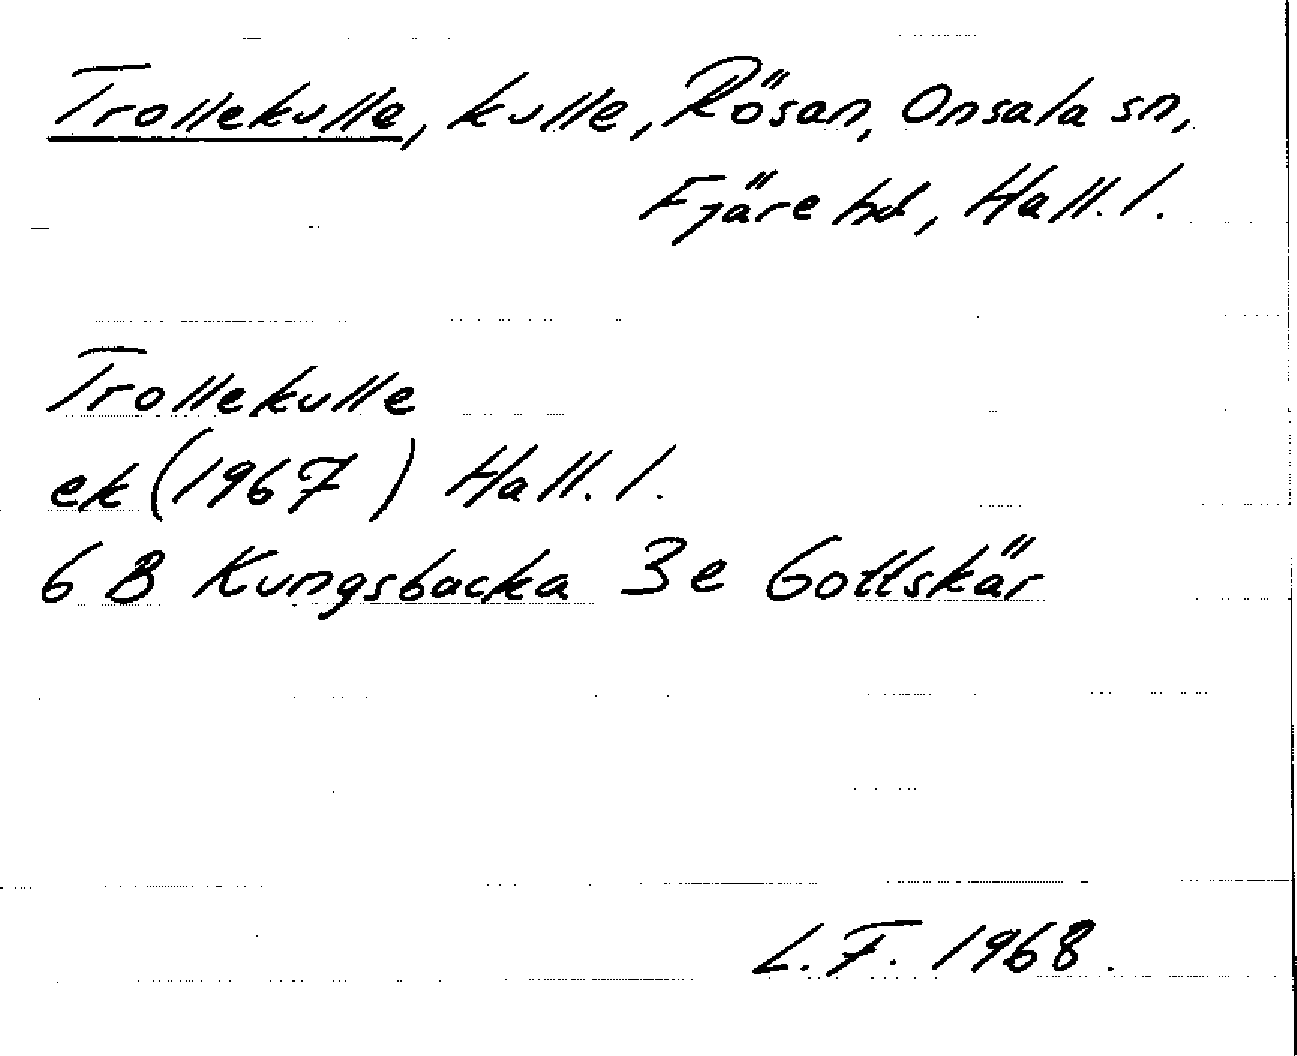 Trollekulle, kulle, Rösan, Onsala sn,
Fjäre hd, Hall. l.
Trollekulle
ek (1967) Hall. l.
6 B Kungsbacka 3 e Gottskär
L. F. 1968.